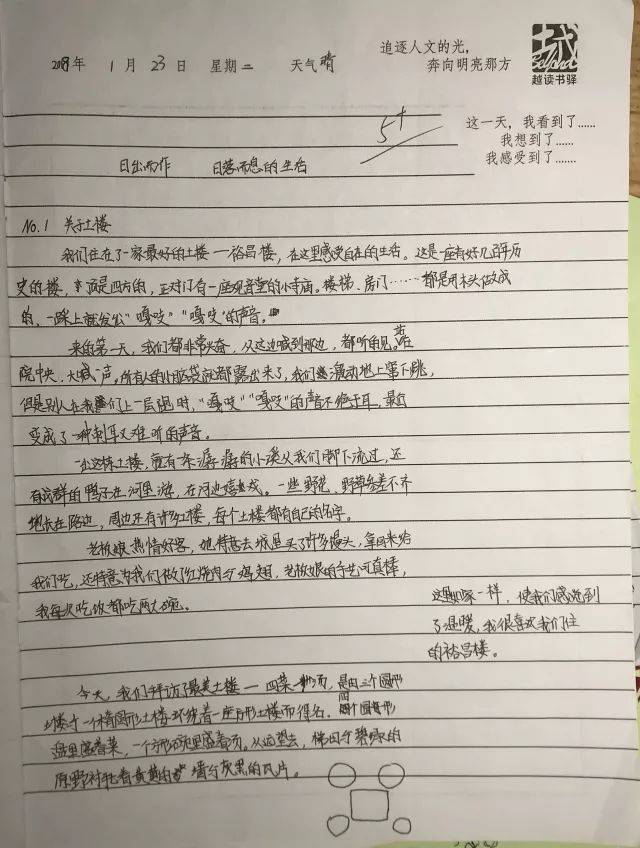 追逐人文的光,
奔向明亮那方
越读书驿
2018年 1月23日 星期二 天气晴
5+
这一天, 我看到了......
我想到了......
我感受到了......
日出而作 日落而息的生活
No.1 关于土楼
我们住在了一家最好的土楼一裕昌楼, 在这里感受自在的生活。这是一座有好几百年历
史的楼, 顶是四方的, 正对门有一座观音堂的小寺庙。楼梯、房门……都是用木头做成
的, 一踩上就发出"嘎吱""嘎吱"的声音。
来的第一天, 我们都非常兴奋, 从这边喊到那边, 都听的见。站在
院中央, 大喊一声, 所有人的小脑袋就都露出来了, 我们激动地上窜下跳,
但是别人在我们上一层跑时, "嘎吱""嘎吱"的声音不绝于耳, 最后
变成了一种刺耳又难听的声音。
一出这栋土楼, 就有一条潺潺的小溪从我们脚下流过, 还
有成群的鸭子在河里游, 在河边嬉戏。一些野花, 野草参差不齐
地长在路边, 周边还有许多土楼, 每个土楼都有自己的名字。
老板娘热情好客, 她特意去城里买了许多馒头, 拿回来给
我们吃, 还特意为我们做了红烧肉与鸡翅, 老板娘的手艺可真棒,
我每次吃饭都吃两大碗。
这里如家一样, 使我们感觉到
了温暖, 我很喜欢我们住
的裕昌楼。
今天, 我们拜访了最美土楼一 四菜一汤, 是由三个圆形
土楼与一个椭圆形土楼环绕着一座方形土楼而得名, 四个圆形
盘里盛着菜, 一个方形碗里盛着汤。从远望去, 梯田与碧绿的
原野衬托着黄色的墙与灰黑的瓦片。